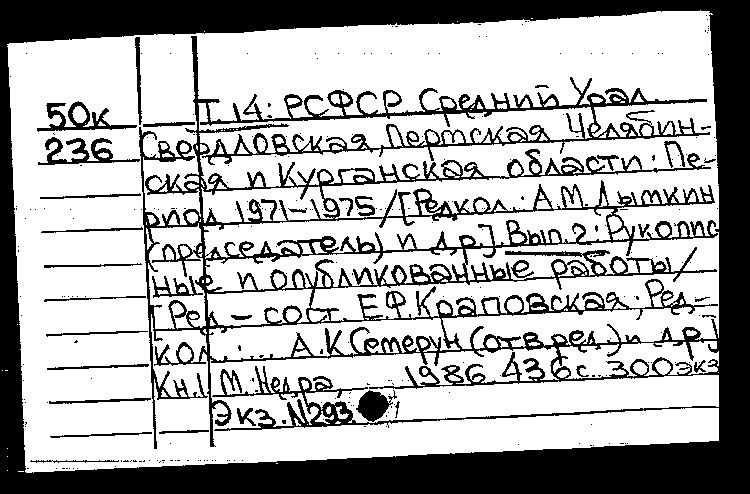 50к Т. 14: РСФСР. Средний Урал
236 Свердловская, Пермская, Челябин-
ская и Курганская области: Пе-
риод 1971-1975/[Редкол.: А.М. Дымкин
(председатель) и др.]. Вып. 2: Рукопис
ные и опубликованные работы/
[Ред.-сост. Е.Ф. Краповская; Ред-
кол.: ... А.К. Семерун (отв.ред.) и др.]
Кн. 1. М.: Недра, 1986. 436с. 300экз
Экз. N293